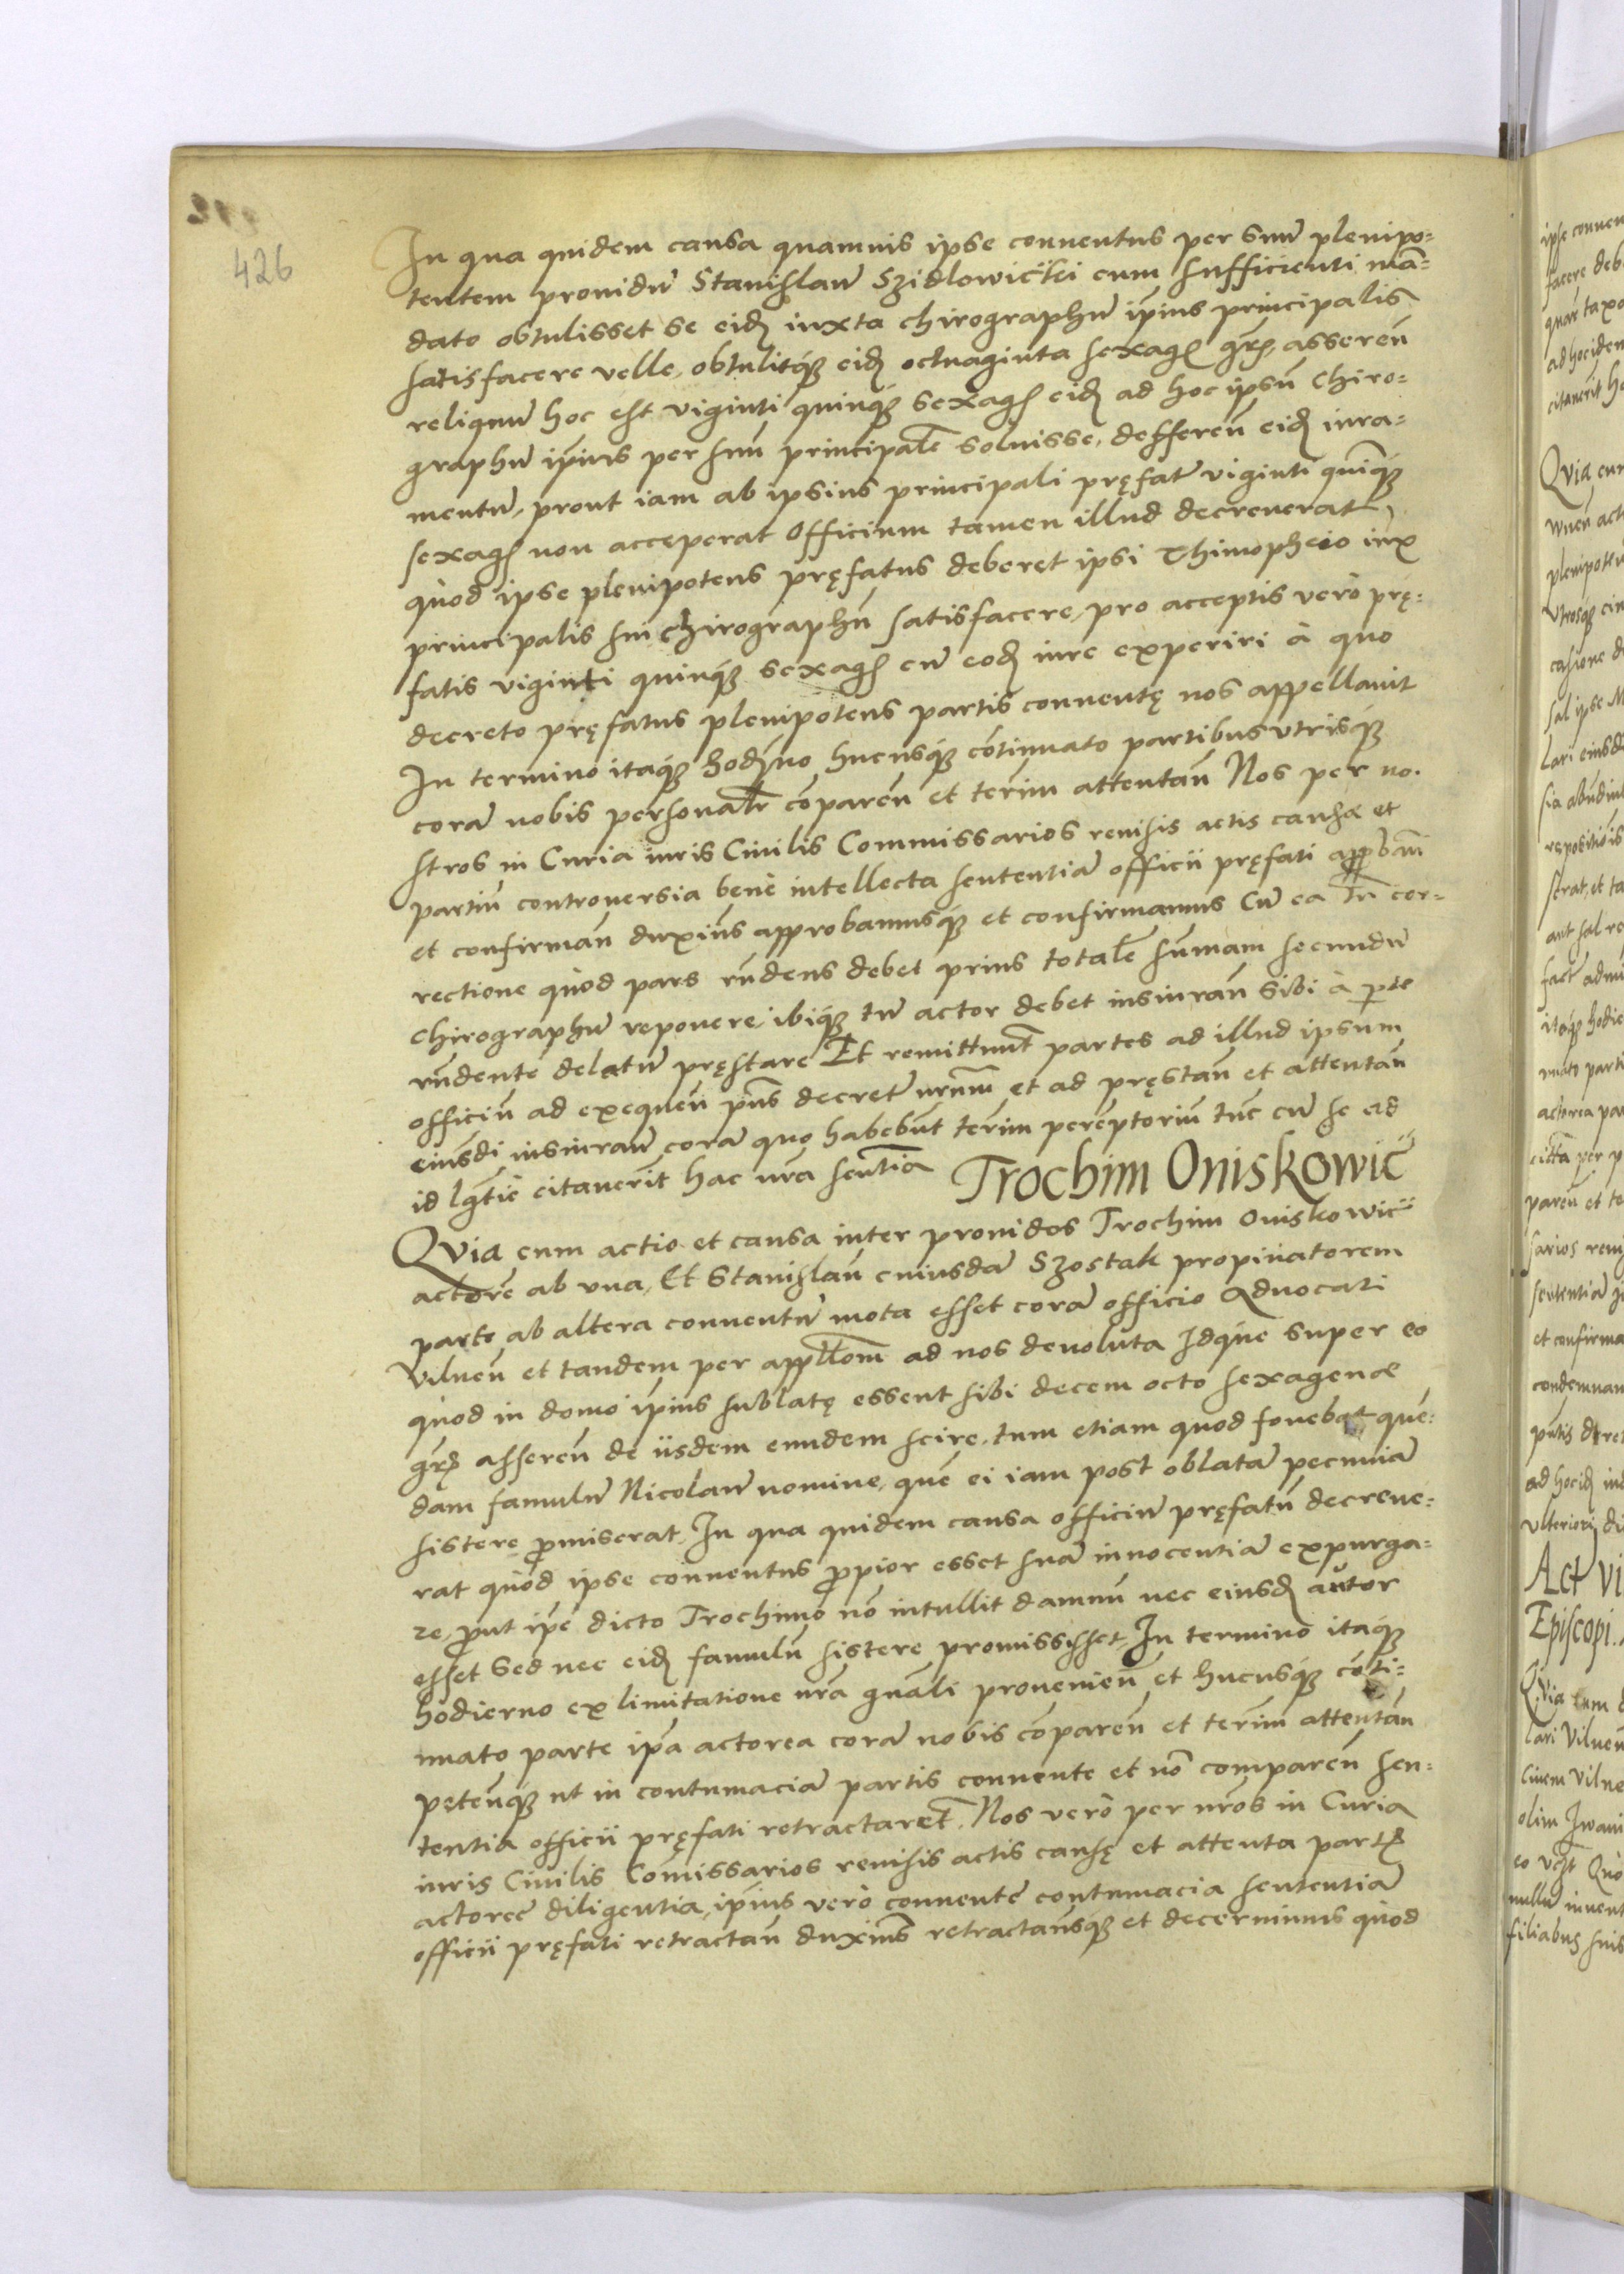 426
In qua quidem causa quamuis ipse conuentus per suũ plenipo:
tentem prouidũ Stanislaũ Szidlowiczki cum sufficienti mã:
dato obtulisset se eidẽ iuxta chirographũ ip̃ius principalis
satisfacere velle, obtulitq́ eidẽ octuaginta sexagẽ gr̃, asserẽn
reliquũ hoc est viginti quinq́ sexagẽ eidẽ ad hoc ipsũ chiro:
graphũ ip̃ius per suũ principalẽ soluisse, defferẽn eidẽ iura:
mentũ, prout iam ab ipsius principali pręfatũ viginti quinq́
sexagẽ non acceperat Officium tamen illud decreuerat,
quòd ipse plenipotens pręfatus deberet ipsi Thimopheio iux
principalis sui chirographũ satisfacere, pro acceptis verò prę:
fatis viginti quinq́ sexagẽ cũ eodẽ iure experiri à quo
decreto pręfatus plenipotens partis conuentę nos appellauit
In termino itaq́ hodierno hucusq́ cõtinuato partibus vtrisq́
corã nobis personalr̃ cõparẽn et terim attentãn Nos per no.
stros in Curia iuris Ciuilis Commissarios reuisis actis causæ et
partiũ controuersia benè intellecta sententiã officii pręfati approbãn
et confirmãn duxim̃s approbamusq́ et confirmamus Cũ ea tñ cor:
rectione quòd pars rñdens debet prius totalẽ sum̃am secundũ
chirographũ reponere, ibiq́ tũ actor debet insiurañ sibi à p̱te
rñdente delatũ pręstare Et remittunt partes ad illud ipsum
officiũ ad exequẽn pñs decretũ nr̃um et ad pręstañ et attentañ
eiusdi insiurañ corã quo habebũt terim perẽptoriũ tũc cũ se ad
id lgtiẽ citauerit hac nr̃a sentĩa Trochim Oniskowic
Qvia cum actio et causa inter prouidos Trochim Oniskowic
actorẽ ab vna, Et Stanislaũ cuiusdã Szostak propinatorem
parte ab altera conuentũ mota esset corã officio Aduocati
Vilneñ et tandem per appllõm ad nos deuoluta Idq́ue super eo
quòd in domo ip̃ius sublatę essent sibi decem octo sexagenæ
gr̃ asserẽn de iisdem eundem scire, tum etiam quod fouebat que:
dam famulũ Nicolaũ nomine, quẽ ei iam post oblatã pecuniã
sistere p̱miserat, In qua quidem causa officiũ pręfatũ decreue:
rat quòd ipse conuentus p̱pior esset suã innocentiã expurga:
re, p̱ut ip̃e dicto Trochimo nõ intullit damnũ nec eiusdẽ autor
esset Sed nec eidẽ famulũ sistere promississet, In termino itaq́
hodierno ex limitatione nr̃a gnãli prouenieñ et hucusq́ cõti:
nuato parte ip̃a actorea corã nobis cõpareñ et terim attentãn
petenq́ ut in contumaciã partis conuente et nõ compareñ sen:
tentia officii pręfati retractaret̃. Nos verò per nr̃os in Curia
iuris Ciuilis Com̃issarios reuisis actis causę et attenta partẽ
actoreę diligentia, ip̃ius verò conuentę contumacia sententiã
officii pręfati retractañ duxim̃s retractam̃sq́ et decernimus quòd